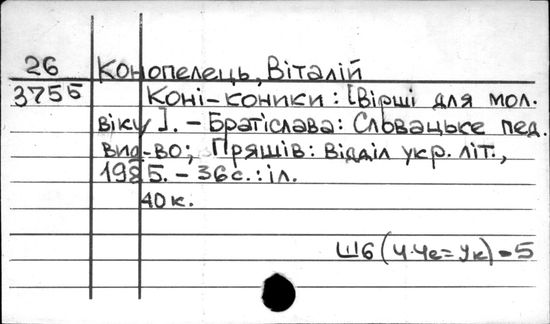 26 Конопелець, Віталій
3755 Коні-коники: [Вірші для мол.
віку]. – Братіслава: Словацьке пед.
вид-во; Пряшів: Відділ укр. літ.,
1985. – 36с.: іл.
40к.
Ш6(4.Че=Ук)-5